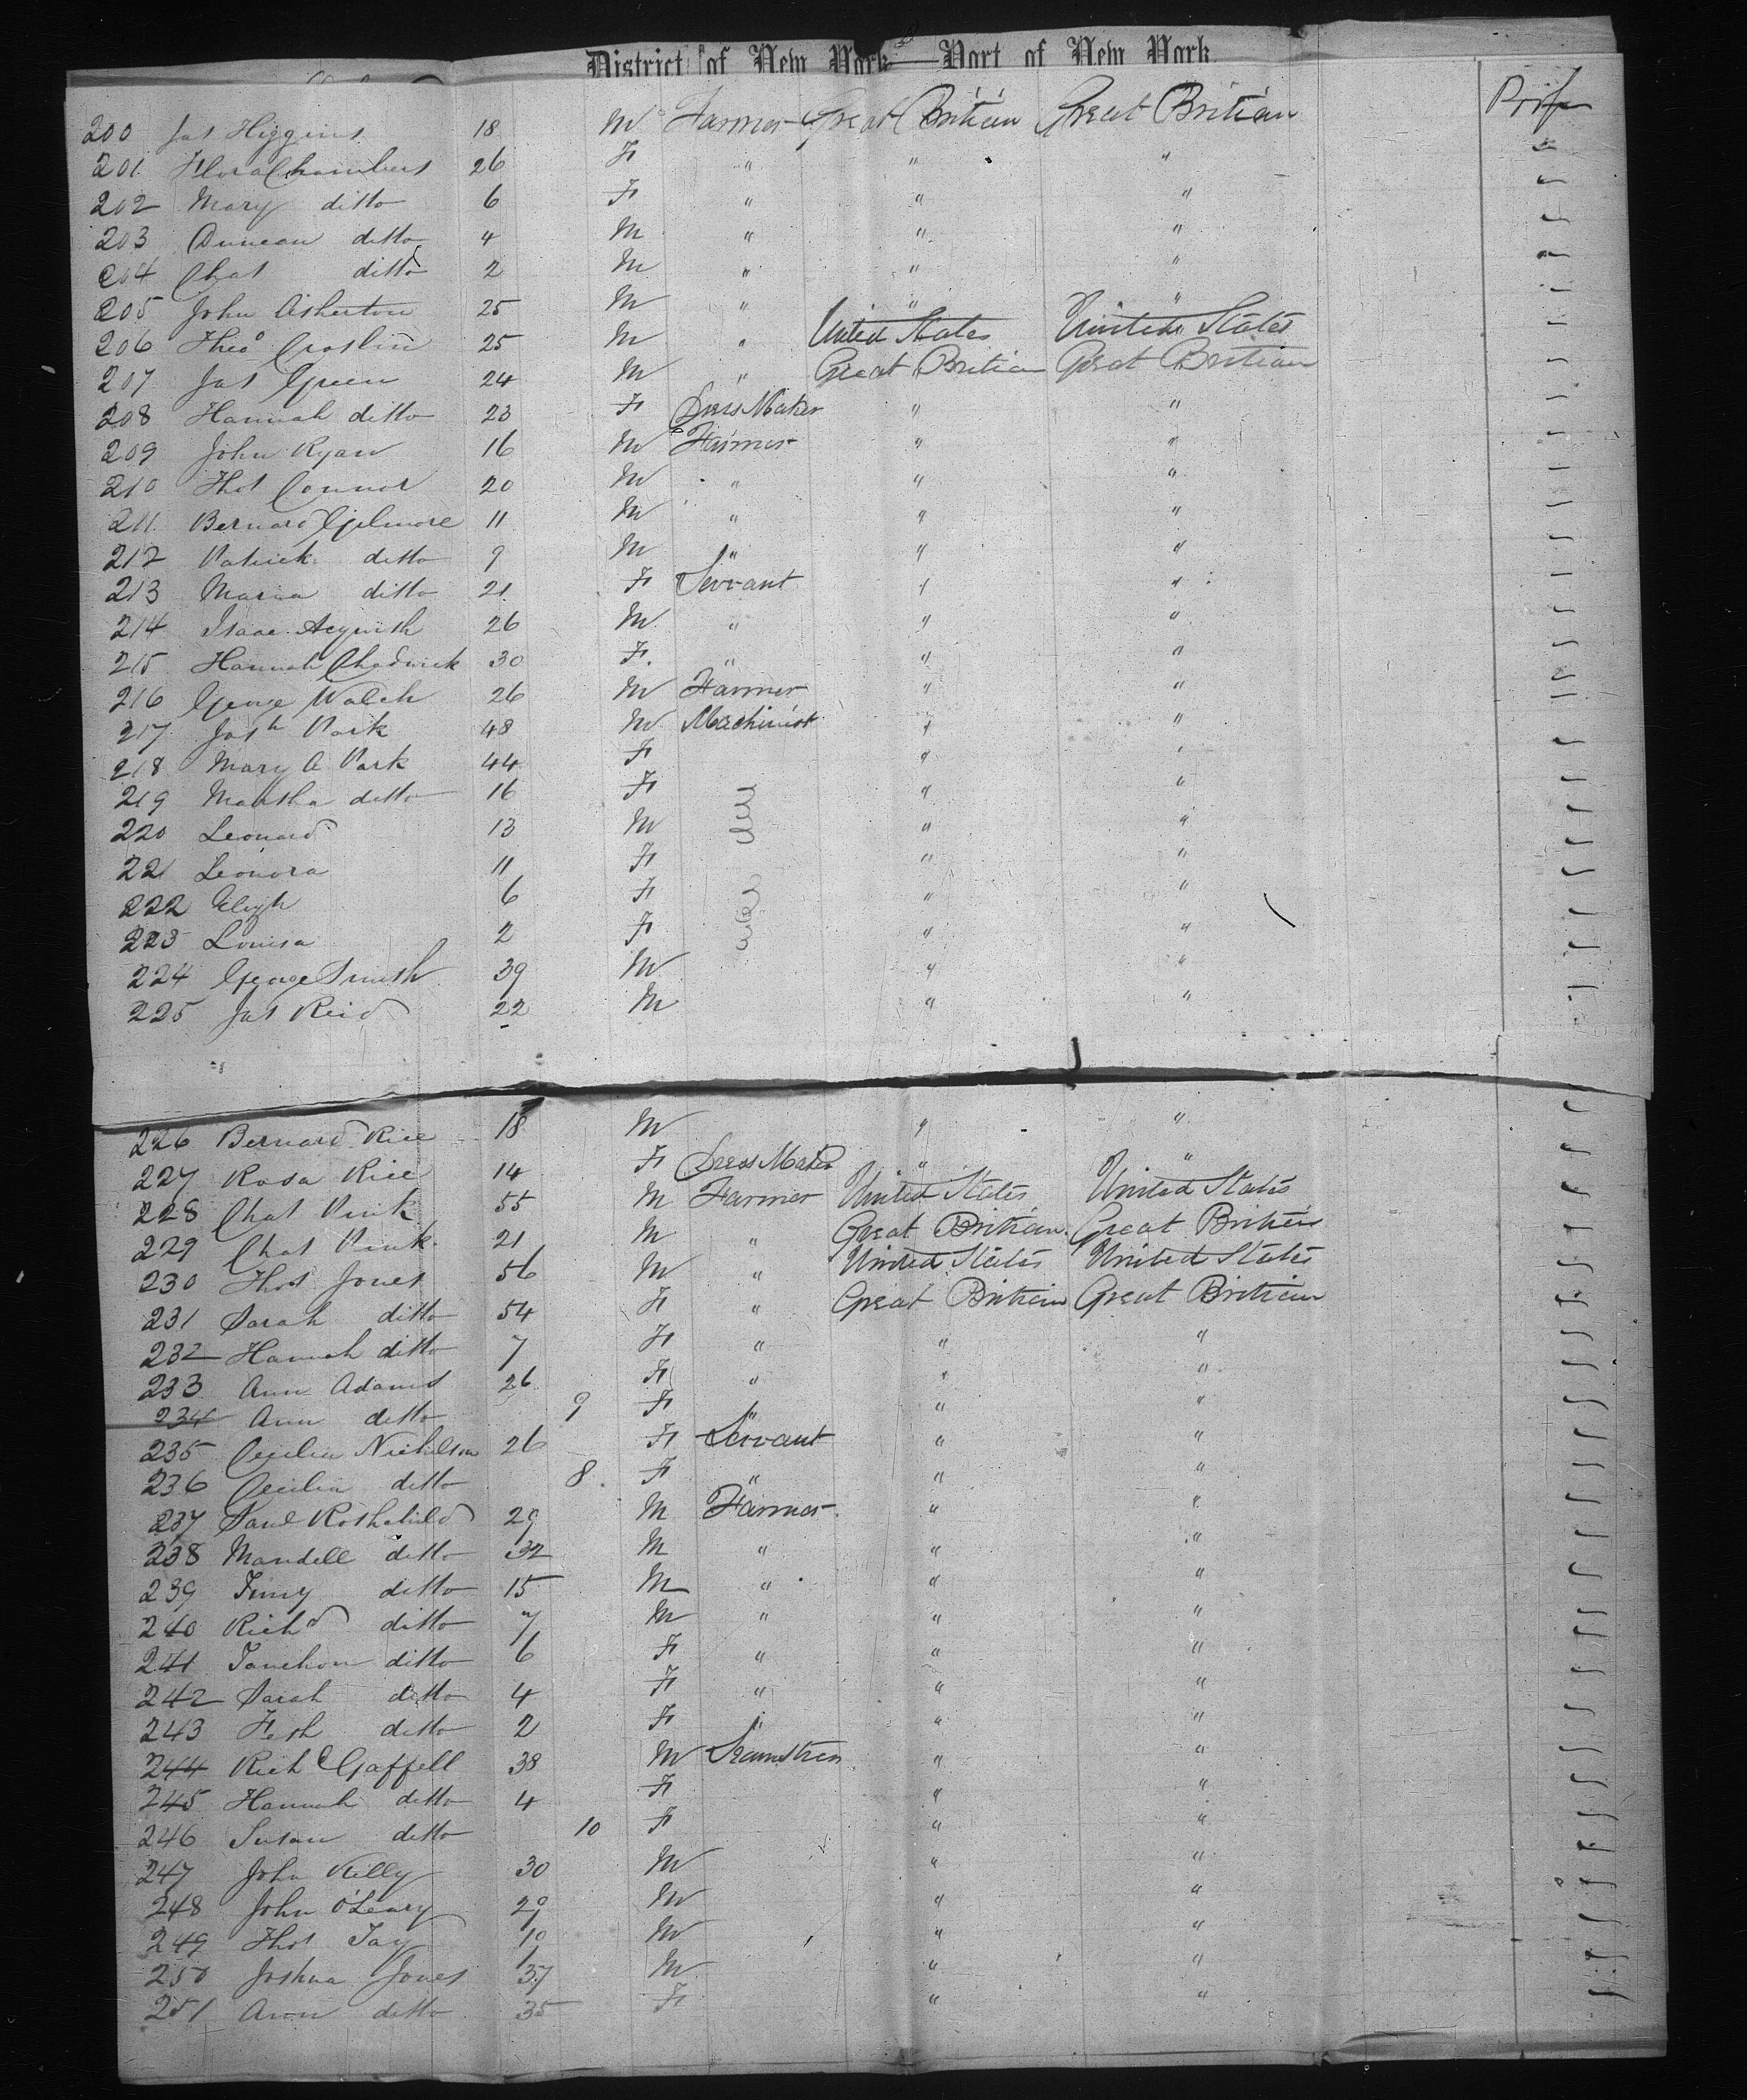 District of New York — Port of New York
200 Jas Higgins 18 M Farmer Great Britian Great Britian
201 Flora Chambers 26 F " " "
202 Mary ditto 6 F " " "
203 Duncan ditto 4 M " " "
204 Chas ditto 2 M " " "
205 John Asherton 25 M " " "
206 Theo 25 M " United States United States
207 Jas Green 24 M " Great Britian Great Britian
208 Hannah ditto 23 F Dress Maker " "
209 John Ryan 16 M Farmer " "
210 Thos Connor 20 M " " "
211 Bernard Gilmore 11 M " " "
212 Patrick ditto 9 M " " "
213 Maria ditto 21 F Servant " "
214 Isaac 26 M " " "
215 Hannah Chadwick 30 F " " "
216 George Walch 26 M Farmer " "
217 Josh Park 48 M Machinist " "
218 Mary A Park 44 F " "
219 Martha ditto 16 F " "
220 Leonard 13 M " "
221 Leonora 11 F " "
222 6 F " "
223 Louisa 2 F " "
224 George Smith 39 M " "
225 Jas Reid 22 M " "
226 Bernard Rice 18 M " "
227 Rosa Rice 14 F Dress Maker " "
228 Chas Pink 55 M Farmer United States United States
229 Chas Pink 21 M " Great Britian Great Britian
230 Thos Jones 56 M " United States United States
231 Sarah ditto 54 F " Great Britian Great Britian
232 Hannah ditto 7 F " " "
233 Ann Adams 26 F " " "
234 Ann ditto 9 F " " "
235 Cecilia Nichilson 26 F Servant " "
236 Cecilia ditto 8 F " " "
237 Saul Rothchild 29 M Farmer " "
238 Mandell ditto 32 M " " "
239 ditto 15 M " " "
240 Richd ditto 7 M " " "
241 ditto 6 F " " "
242 Sarah ditto 4 F " " "
243 ditto 2 F " " "
244 Rich Gaffell 38 M Seamstress " "
245 Hannah ditto 4 F " "
246 Susan ditto 10 F " "
247 John Kelly 30 M " "
248 John O'Leary 29 M " "
249 Thos Jay 19 M " "
250 Joshua Jones 37 M " "
251 Ann ditto 35 F " "